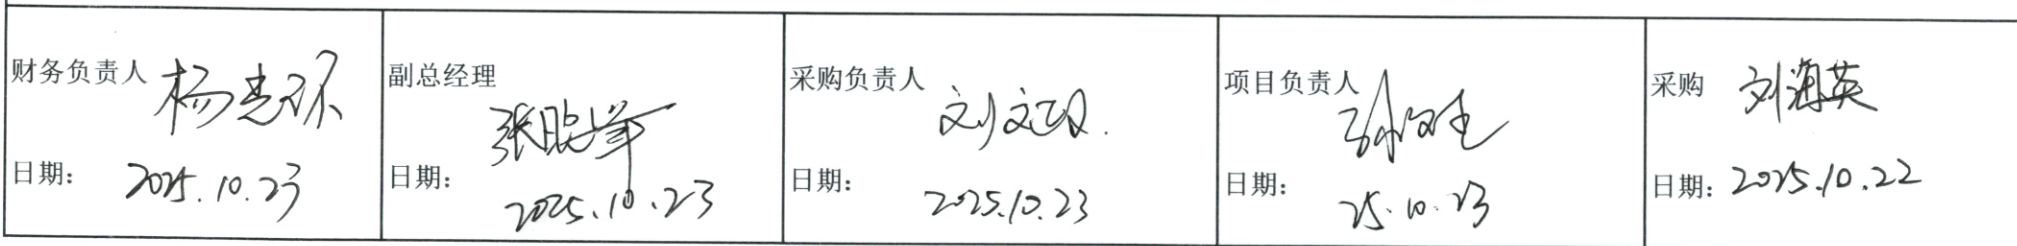 财务负责人
日期：
2025.10.23
副总经理
张晓峰
日期：
2025.10.23
采购负责人
刘文
日期：
2025.10.23
项目负责人
日期：
25.10.23
采购
刘海英
日期：
2025.10.22